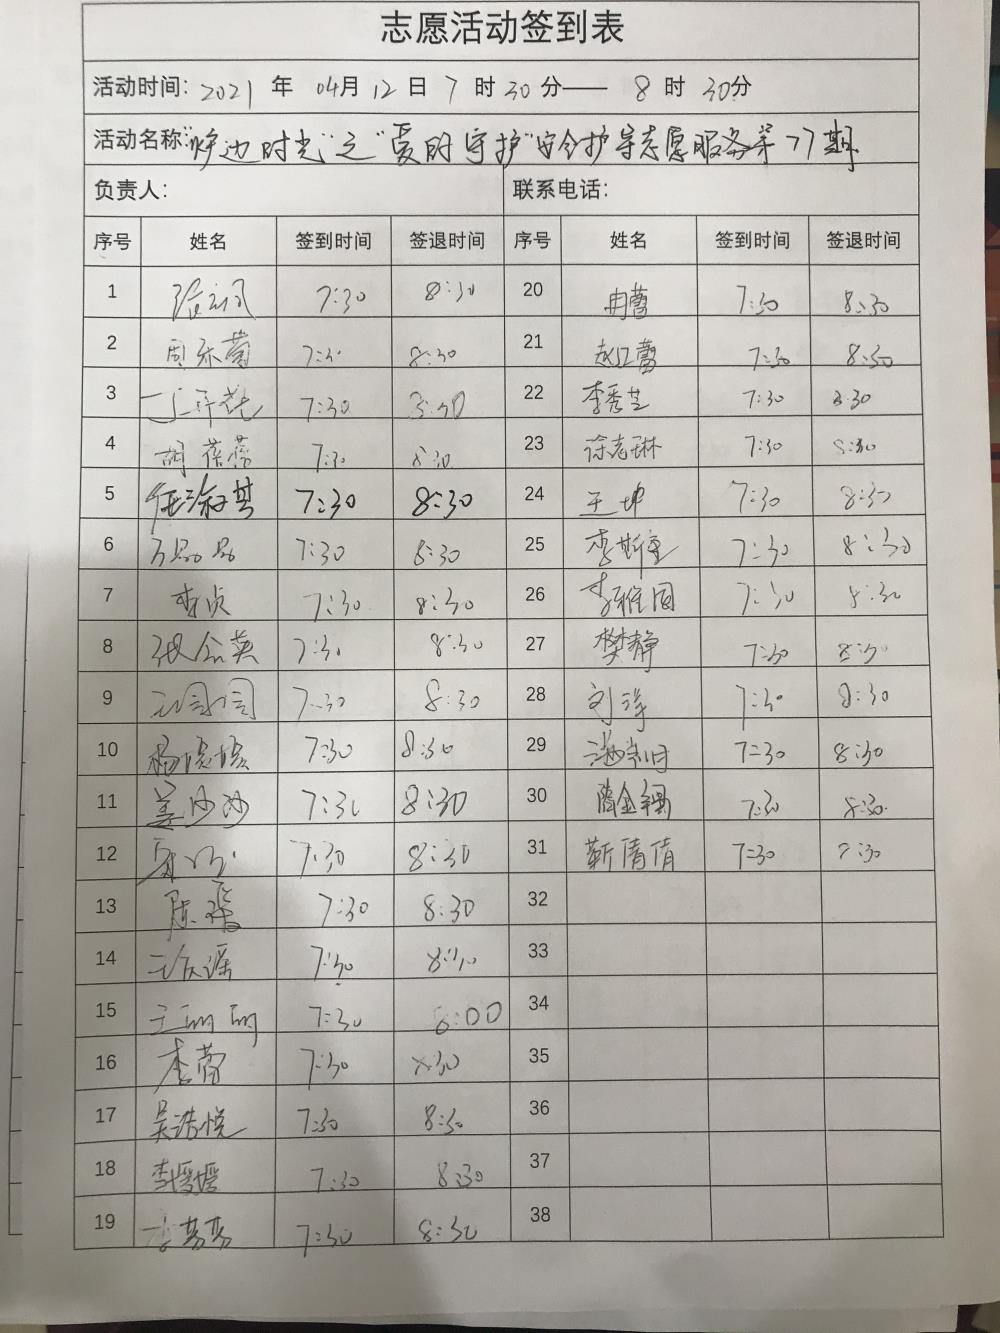 志愿活动签到表
活动时间: 2021 年 04月 12 日 7 时 30 分—— 8 时 30分
活动名称: 时光"之"爱的守护"安全护导志愿服务第77期
负责人: 联系电话:
序号 姓名 签到时间 签退时间 序号 姓名 签到时间 签退时间
1 7:30 8:30 20 冉蕾 7:30 8:30
2 7:30 8:30 21 赵红蕾 7:30 8:30
3 7:30 8:30 22 李秀芝 7:30 8:30
4 胡蓓蓓 7:30 8:30 23 徐志琳 7:30 8:30
5 7:30 8:30 24 王坤 7:30 8:30
6 万晶晶 7:30 8:30 25 7:30 8:30
7 李贞 7:30 8:30 26 7:30 8:30
8 7:30 8:30 27 樊静 7:30 8:30
9 7:30 8:30 28 刘洋 7:30 8:30
10 7:30 8:30 29 7:30 8:30
11 姜沙沙 7:30 8:30 30 7:30 8:30
12 7:30 8:30 31 靳倩倩 7:30 8:30
13 7:30 8:30 32
14 7:30 8:30 33
15 王丽丽 7:30 8:00 34
16 李蕾 7:30 8:30 35
17 吴浩悦 7:30 8:30 36
18 李媛媛 7:30 8:30 37
19 7:30 8:30 38